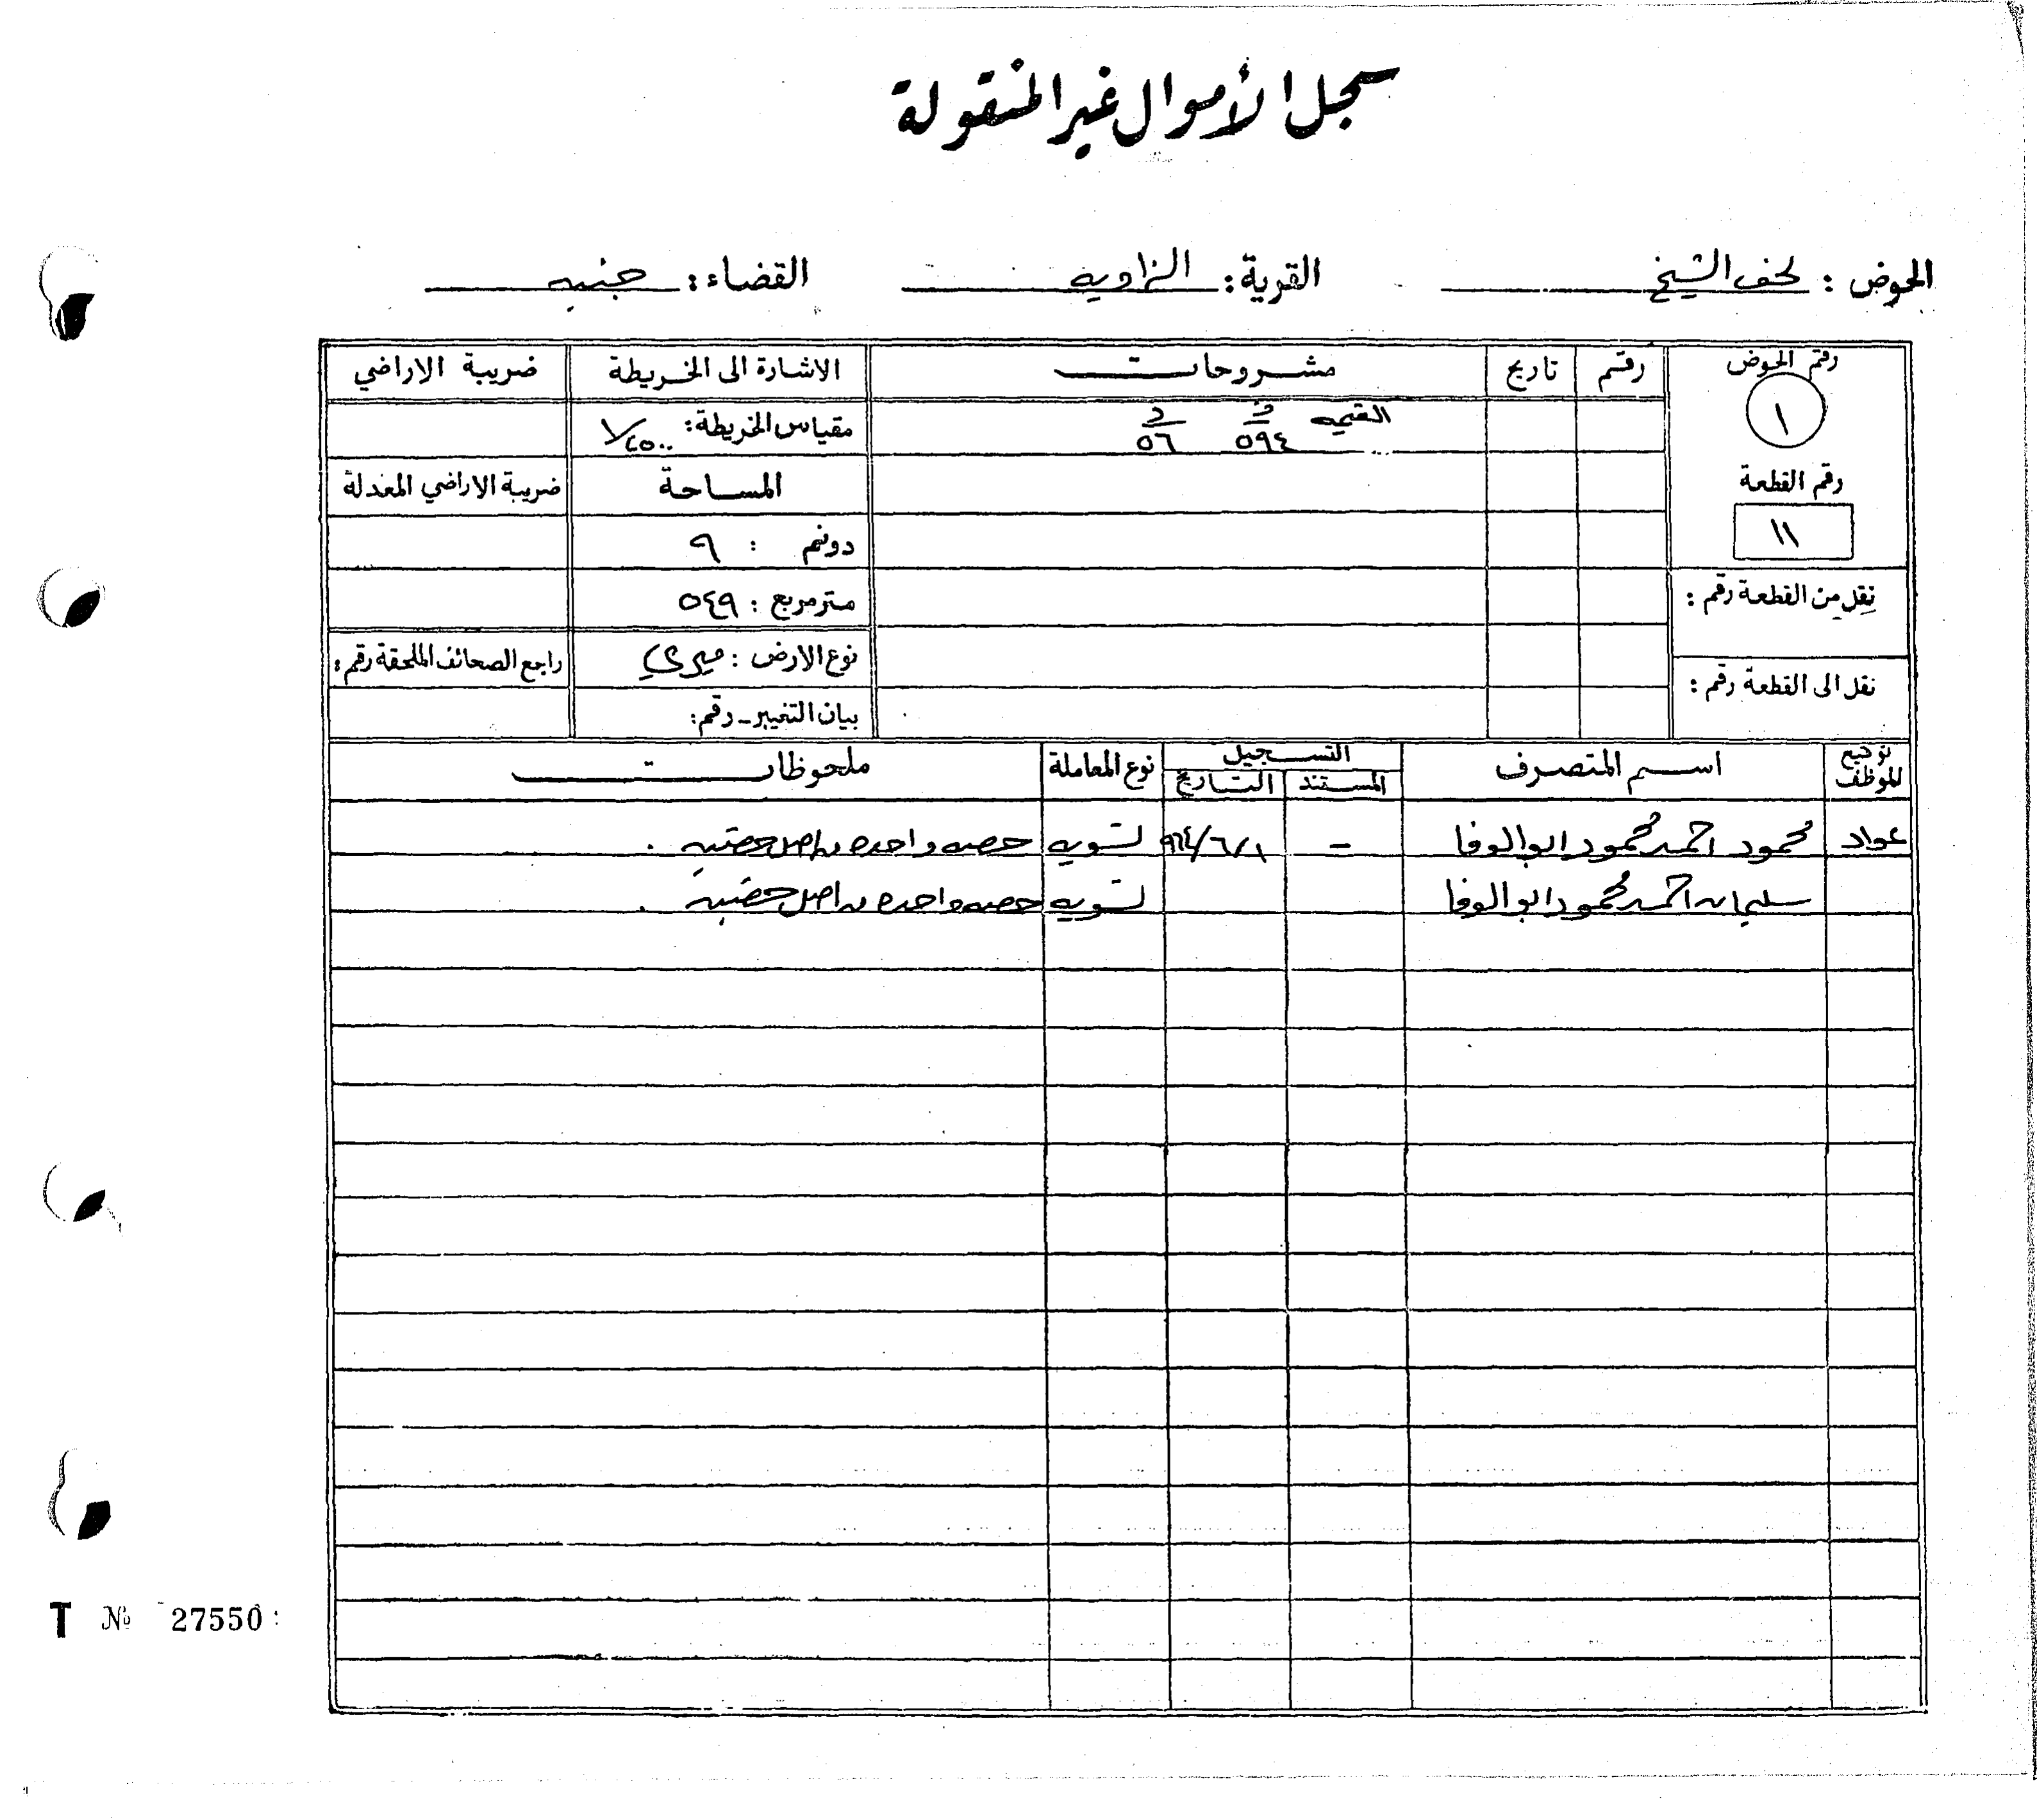 سجل الأموال غير المنقولة
الحوض : لحف الشيخ القرية : الزاويه القضاء : جنين
رقم الحوض رقم تاريخ مشروحات الاشارة الى الخريطة ضريبة الاراضي
١ القيمه ٥٩٤ ٥٦ مقياس الخريطة: ١/٢٥٠٠
رقم القطعة المساحة ضريبة الاراضي المعدلة
١١ دونم : ٩
نقل من القطعة رقم : متر مربع : ٥٤٩
نوع الارض : ميري راجع الصحائف الملحقة رقم :
نقل الى القطعة رقم : بيان التغيير - رقم:
توقيع الموظف اسم المتصرف التسجيل نوع المعاملة ملحوظات
المستند التاريخ
عواد محمود احمد محمود ابو الوفا - ٩٦٤/٦/١ تسويه حصه واحده من اصل حصتين .
سليمان احمد محمود ابو الوفا تسويه حصه واحده من اصل حصتين .
T № 27550